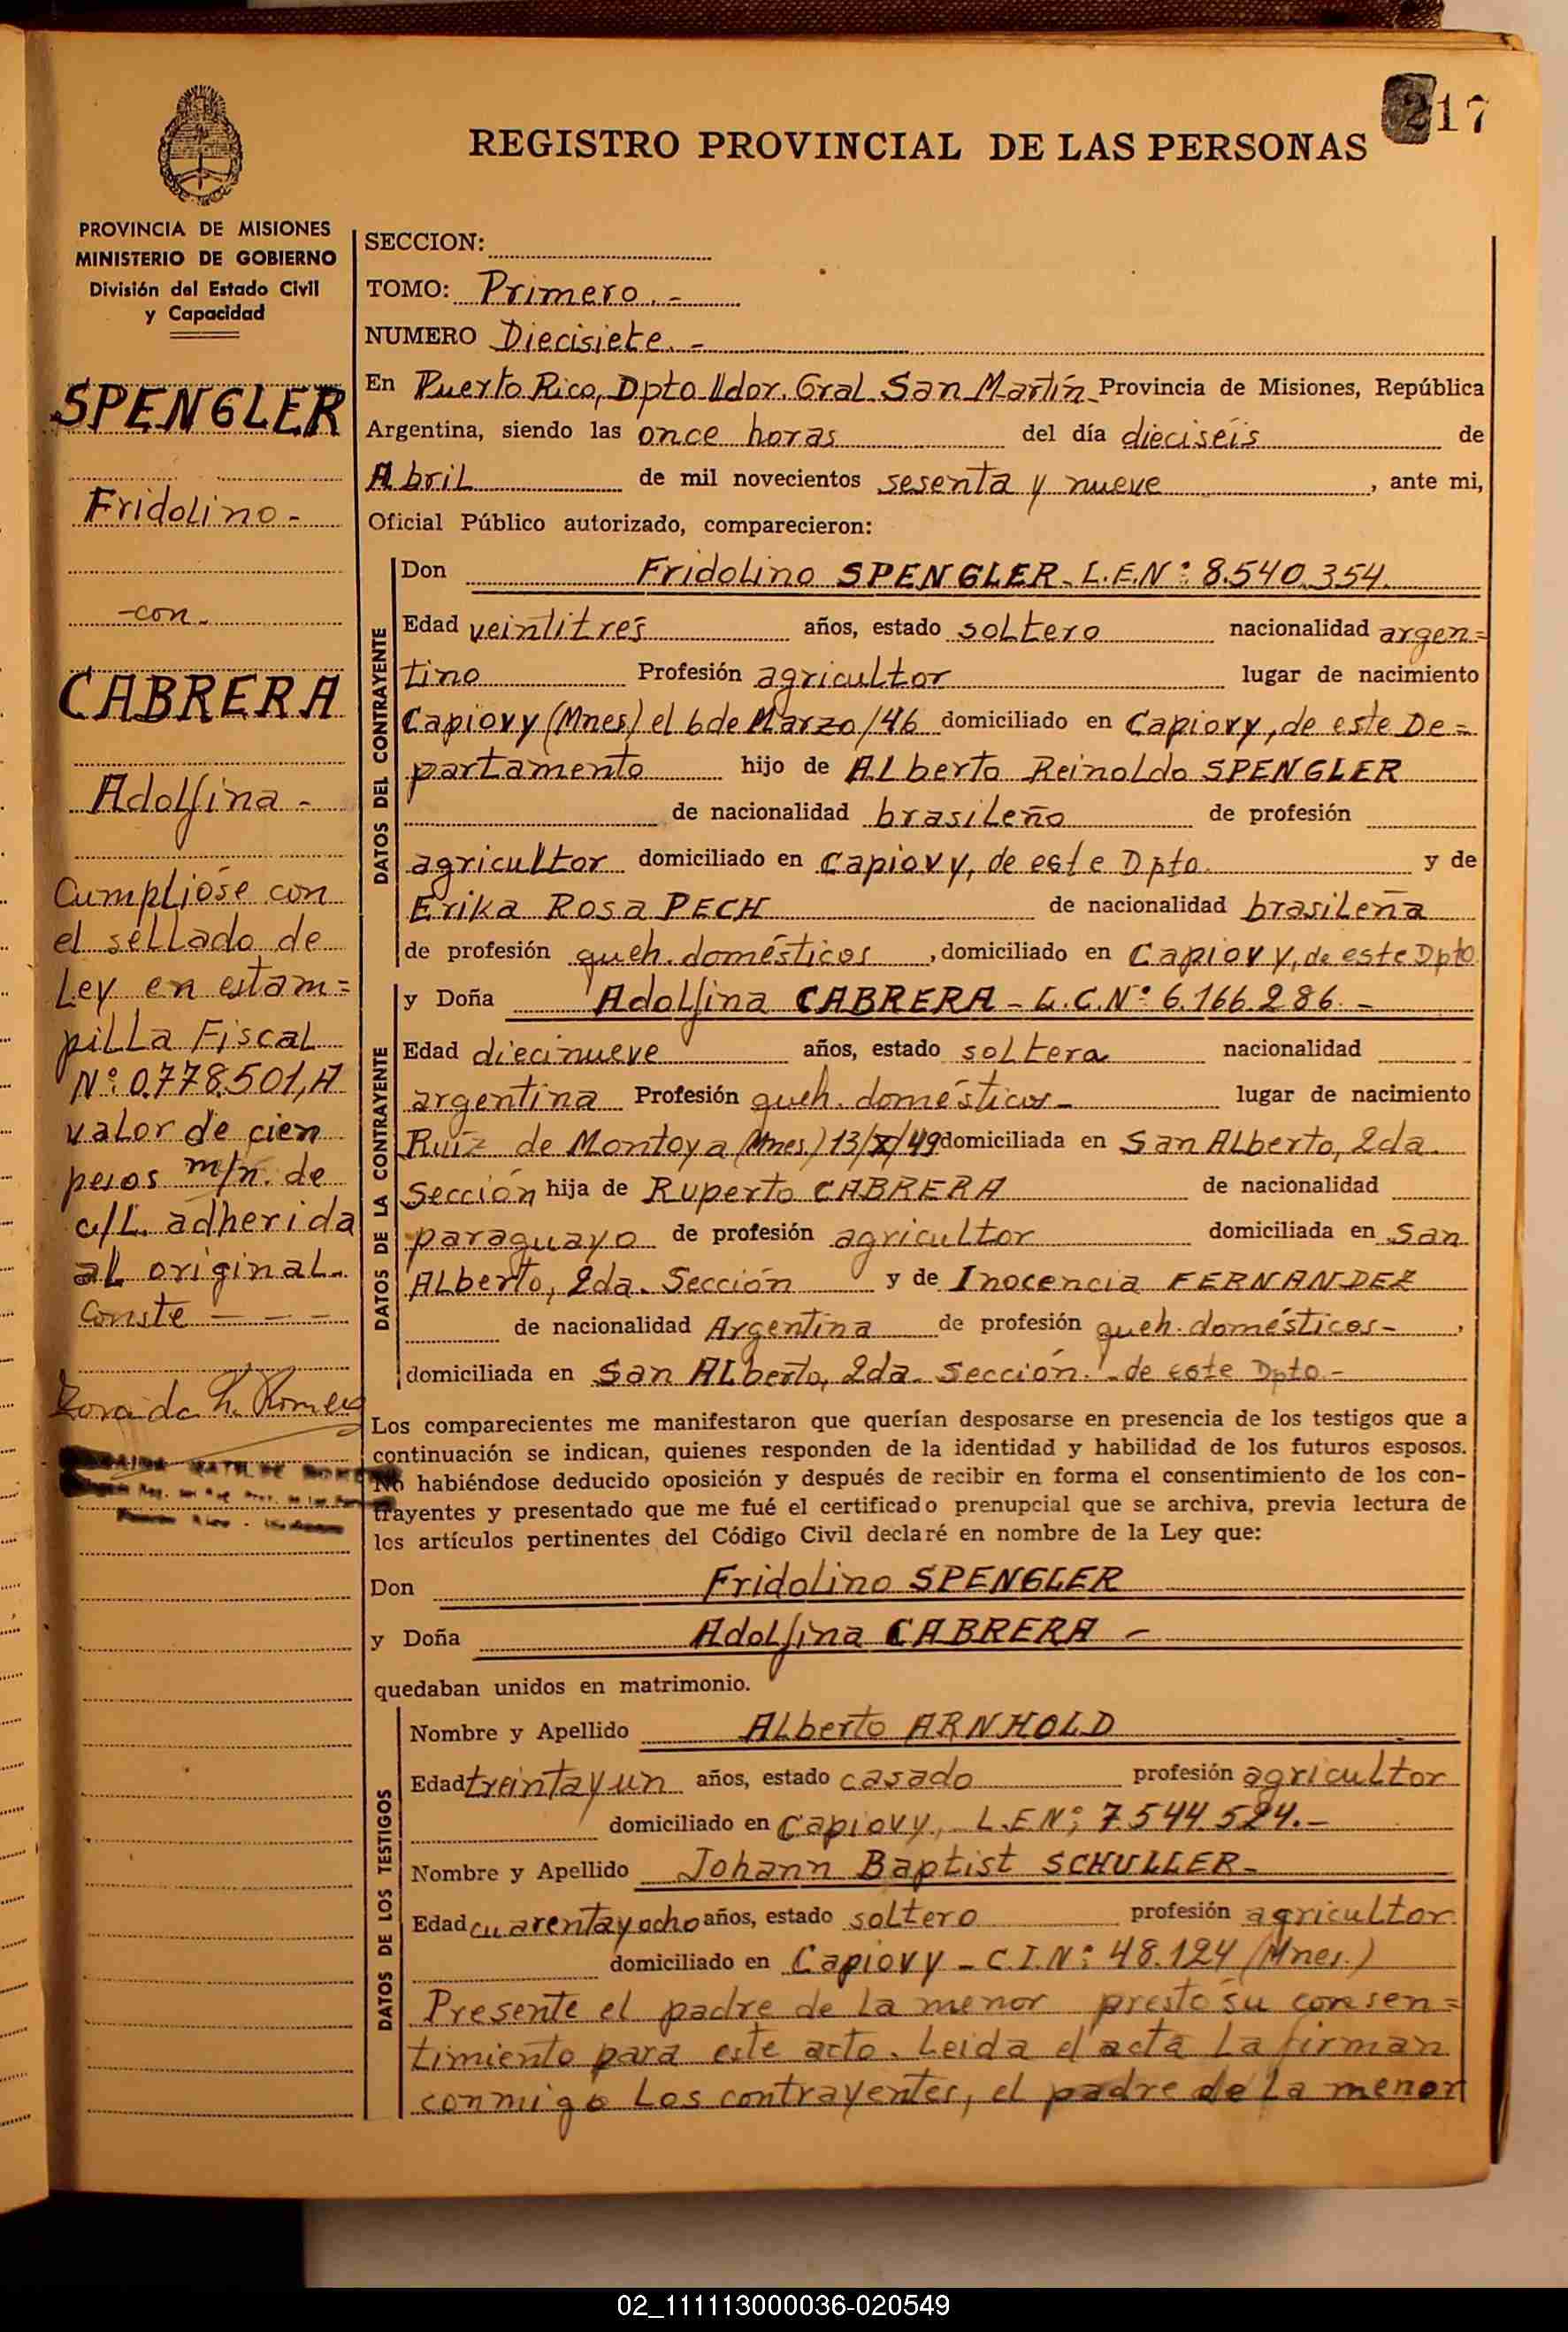 217
REGISTRO PROVINCIAL DE LAS PERSONAS
PROVINCIA DE MISIONES
MINISTERIO DE GOBIERNO
División del Estado Civil
y Capacidad
SPENGLER
Fridolino -
-con-
CABRERA
Adolfina -
Cumplióse con
el sellado de
Ley en estam=
pilla Fiscal
Nº: 0.778.501, A
valor de cien
pesos m/n. de
c/L. adherida
al original.-
Conste - - -
SECCION:
TOMO: Primero.-
NUMERO Diecisiete.-
En Puerto Rico, Dpto Ldor. Gral San Martín Provincia de Misiones, República
Argentina, siendo las once horas del día dieciseis de
Abril de mil novecientos sesenta y nueve, ante mi,
Oficial Público autorizado, comparecieron:
DATOS DEL CONTRAYENTE
Don Fridolino SPENGLER - L.E.Nº: 8.540.354.
Edad veintitres años, estado soltero nacionalidad argen=
tino Profesión agricultor lugar de nacimiento
Capiovy (Mnes) el 6 de Marzo/46 domiciliado en Capiovy, de este De=
partamento hijo de Alberto Reinoldo SPENGLER
de nacionalidad brasileño de profesión
agricultor domiciliado en Capiovy, de este Dpto. y de
Erika Rosa PECH de nacionalidad brasileña
de profesión queh. domésticos, domiciliado en Capiovy, de este Dpto
DATOS DE LA CONTRAYENTE
y Doña Adolfina CABRERA - L.C.Nº: 6.166.286.-
Edad diecinueve años, estado soltera nacionalidad
argentina Profesión queh. domésticos- lugar de nacimiento
Ruiz de Montoya (Mnes.) 13/X/49 domiciliada en San Alberto, 2da.
Sección hija de Ruperto CABRERA de nacionalidad
paraguayo de profesión agricultor domiciliada en San
Alberto, 2da. Sección y de Inocencia FERNANDEZ
de nacionalidad Argentina de profesión queh. domésticos-,
domiciliada en San Alberto, 2da. Sección.- de este Dpto.-
Los comparecientes me manifestaron que querían desposarse en presencia de los testigos que a
continuación se indican, quienes responden de la identidad y habilidad de los futuros esposos.
No habiéndose deducido oposición y después de recibir en forma el consentimiento de los con-
trayentes y presentado que me fué el certificado prenupcial que se archiva, previa lectura de
los artículos pertinentes del Código Civil declaré en nombre de la Ley que:
Don Fridolino SPENGLER
y Doña Adolfina CABRERA -
quedaban unidos en matrimonio.
DATOS DE LOS TESTIGOS
Nombre y Apellido Alberto ARNHOLD
Edad treinta y un años, estado casado profesión agricultor
domiciliado en Capiovy, L.E.Nº; 7.544.524.-
Nombre y Apellido Johann Baptist SCHULLER-
Edad cuarenta y ocho años, estado soltero profesión agricultor
domiciliado en Capiovy - C.I.Nº: 48.124 (Mnes.)
Presente el padre de la menor prestó su consen=
timiento para este acto. Leida el acta la firman
conmigo los contrayentes, el padre de la menor
02_111113000036-020549